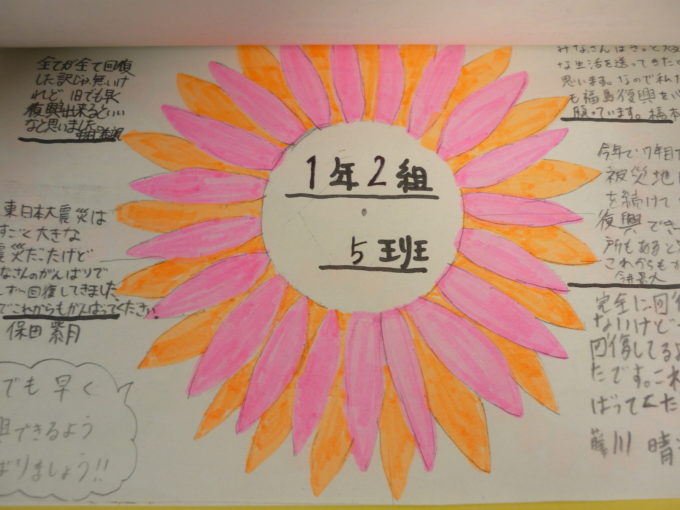 全てが全て回復
した訳じゃ無いけ
れど1日でも早く
復興出来るといい
なと思いました。
東日本大震災は
すごく大きな
震災だったけど
なさんのがんばりで
しずつ回復してきました
でこれからもがんばってください
保田 紫月
でも早く
興できるよう
ばりましょう!!
1年2組
5班
みなさんはきっと大変
な生活を送ってきたと
思います。なので私た
も福島復興をい
願っています。橋本
今年で7年目
被災地
を続けて
復興でき
所もあると
これからもが
完全に回復
ないけど
回復してるよ
たです。これ
ばってくだ
藤川 晴